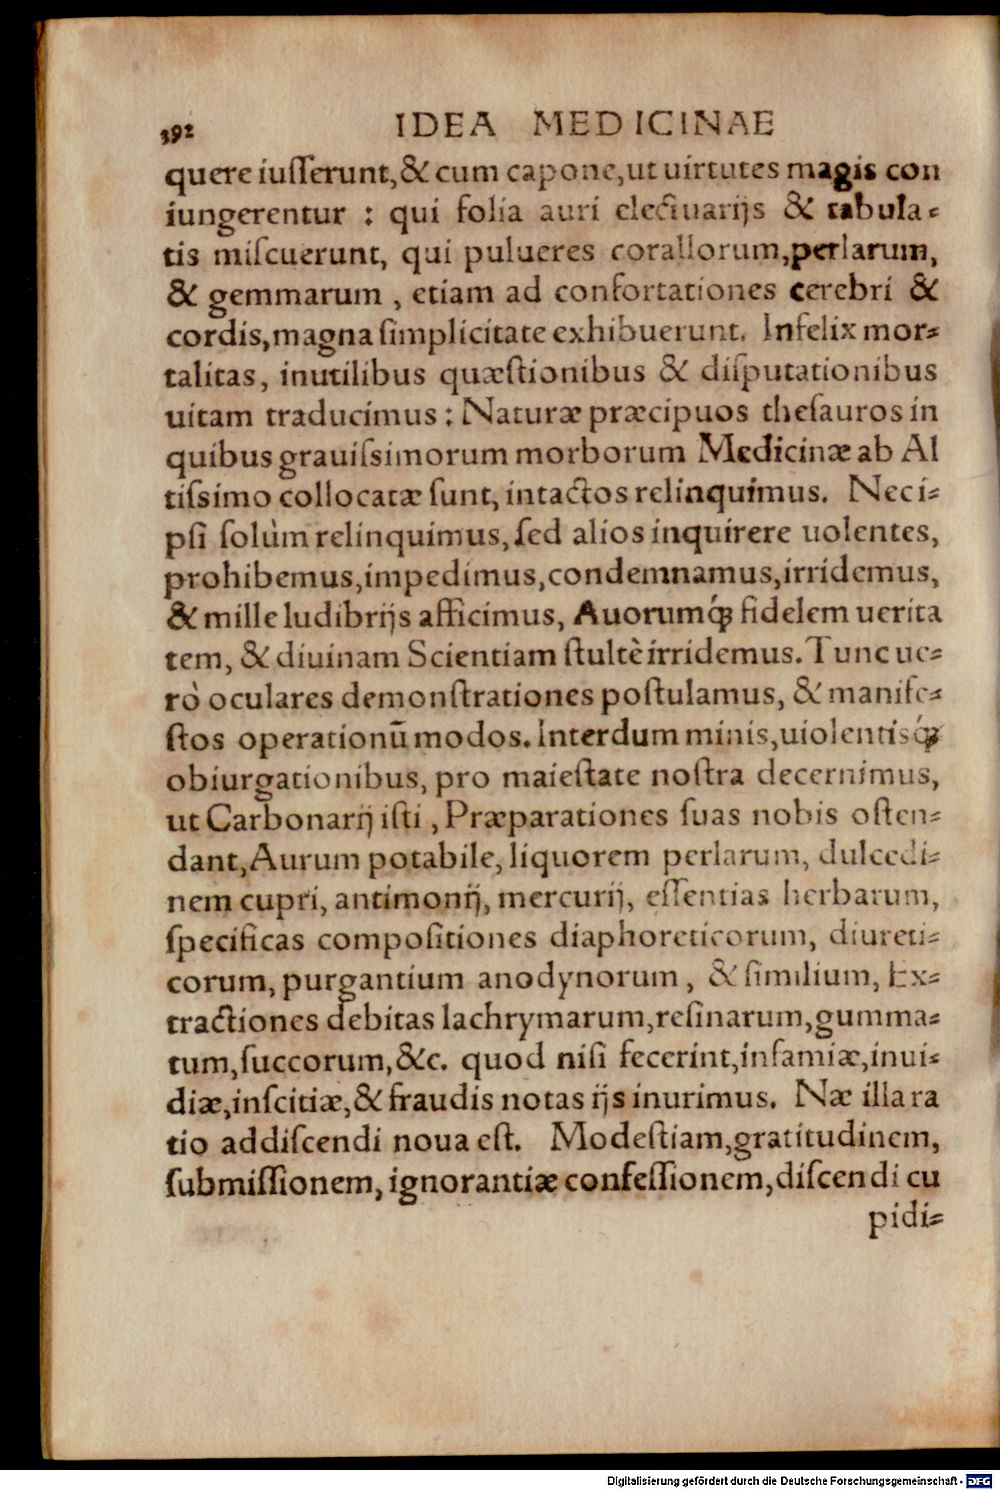 392 IDEA MEDICINAE
quere iuſſerunt, & cum capone, ut uirtutes magis con
iungerentur : qui folia auri electuarijs & tabula-
tis miſcuerunt, qui pulueres corallorum, perlarum,
& gemmarum , etiam ad confortationes cerebri &
cordis, magna ſimplicitate exhibuerunt. Infelix mor-
talitas, inutilibus quæſtionibus & diſputationibus
uitam traducimus : Naturæ præcipuos theſauros in
quibus grauiſsimorum morborum Medicinæ ab Al
tiſsimo collocatæ ſunt, intactos relinquimus. Nec i-
pſi ſolùm relinquimus, ſed alios inquirere uolentes,
prohibemus, impedimus, condemnamus, irridemus,
& mille ludibrijs afficimus, Auorumq́; fidelem uerita
tem, & diuinam Scientiam ſtultè irridemus. Tunc ue-
rò oculares demonſtrationes poſtulamus, & manife-
ſtos operationū modos. Interdum minis, uiolentisq́;
obiurgationibus, pro maieſtate noſtra decernimus,
ut Carbonarij iſti , Præparationes ſuas nobis oſten-
dant, Aurum potabile, liquorem perlarum, dulcedi-
nem cupri, antimonij, mercurij, eſſentias herbarum,
ſpecificas compoſitiones diaphoreticorum, diureti-
corum, purgantium anodynorum , & ſimilium, Ex-
tractiones debitas lachrymarum, reſinarum, gumma-
tum, ſuccorum, &c. quod niſi fecerint, infamiæ, inui-
diæ, inſcitiæ, & fraudis notas ijs inurimus. Næ illa ra
tio addiſcendi noua eſt. Modeſtiam, gratitudinem,
ſubmiſſionem, ignorantiæ confeſſionem, diſcendi cu
pidi-
Digitalisierung gefördert durch die Deutsche Forschungsgemeinschaft - DFG